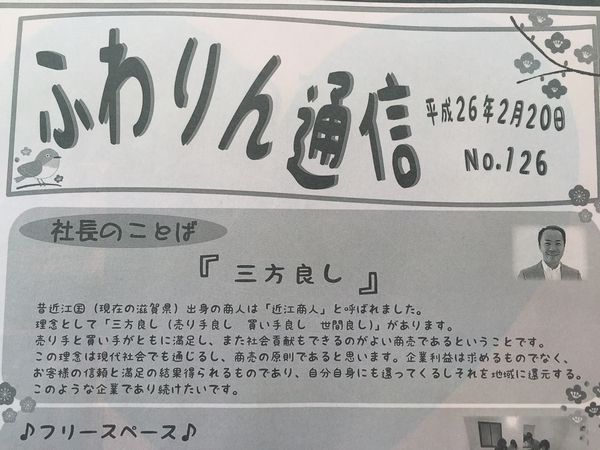 ふわりん通信
平成26年2月20日
No.126
社長のことば
『 三方良し 』
昔近江国（現在の滋賀県）出身の商人は「近江商人」と呼ばれました。
理念として「三方良し（売り手良し 買い手良し 世間良し）」があります。
売り手と買い手がともに満足し、また社会貢献もできるのがよい商売であるということです。
この理念は現代社会でも通じるし、商売の原則であると思います。企業利益は求めるものでなく、
お客様の信頼と満足の結果得られるものであり、自分自身にも還ってくるしそれを地域に還元する。
このような企業であり続けたいです。
♪フリースペース♪